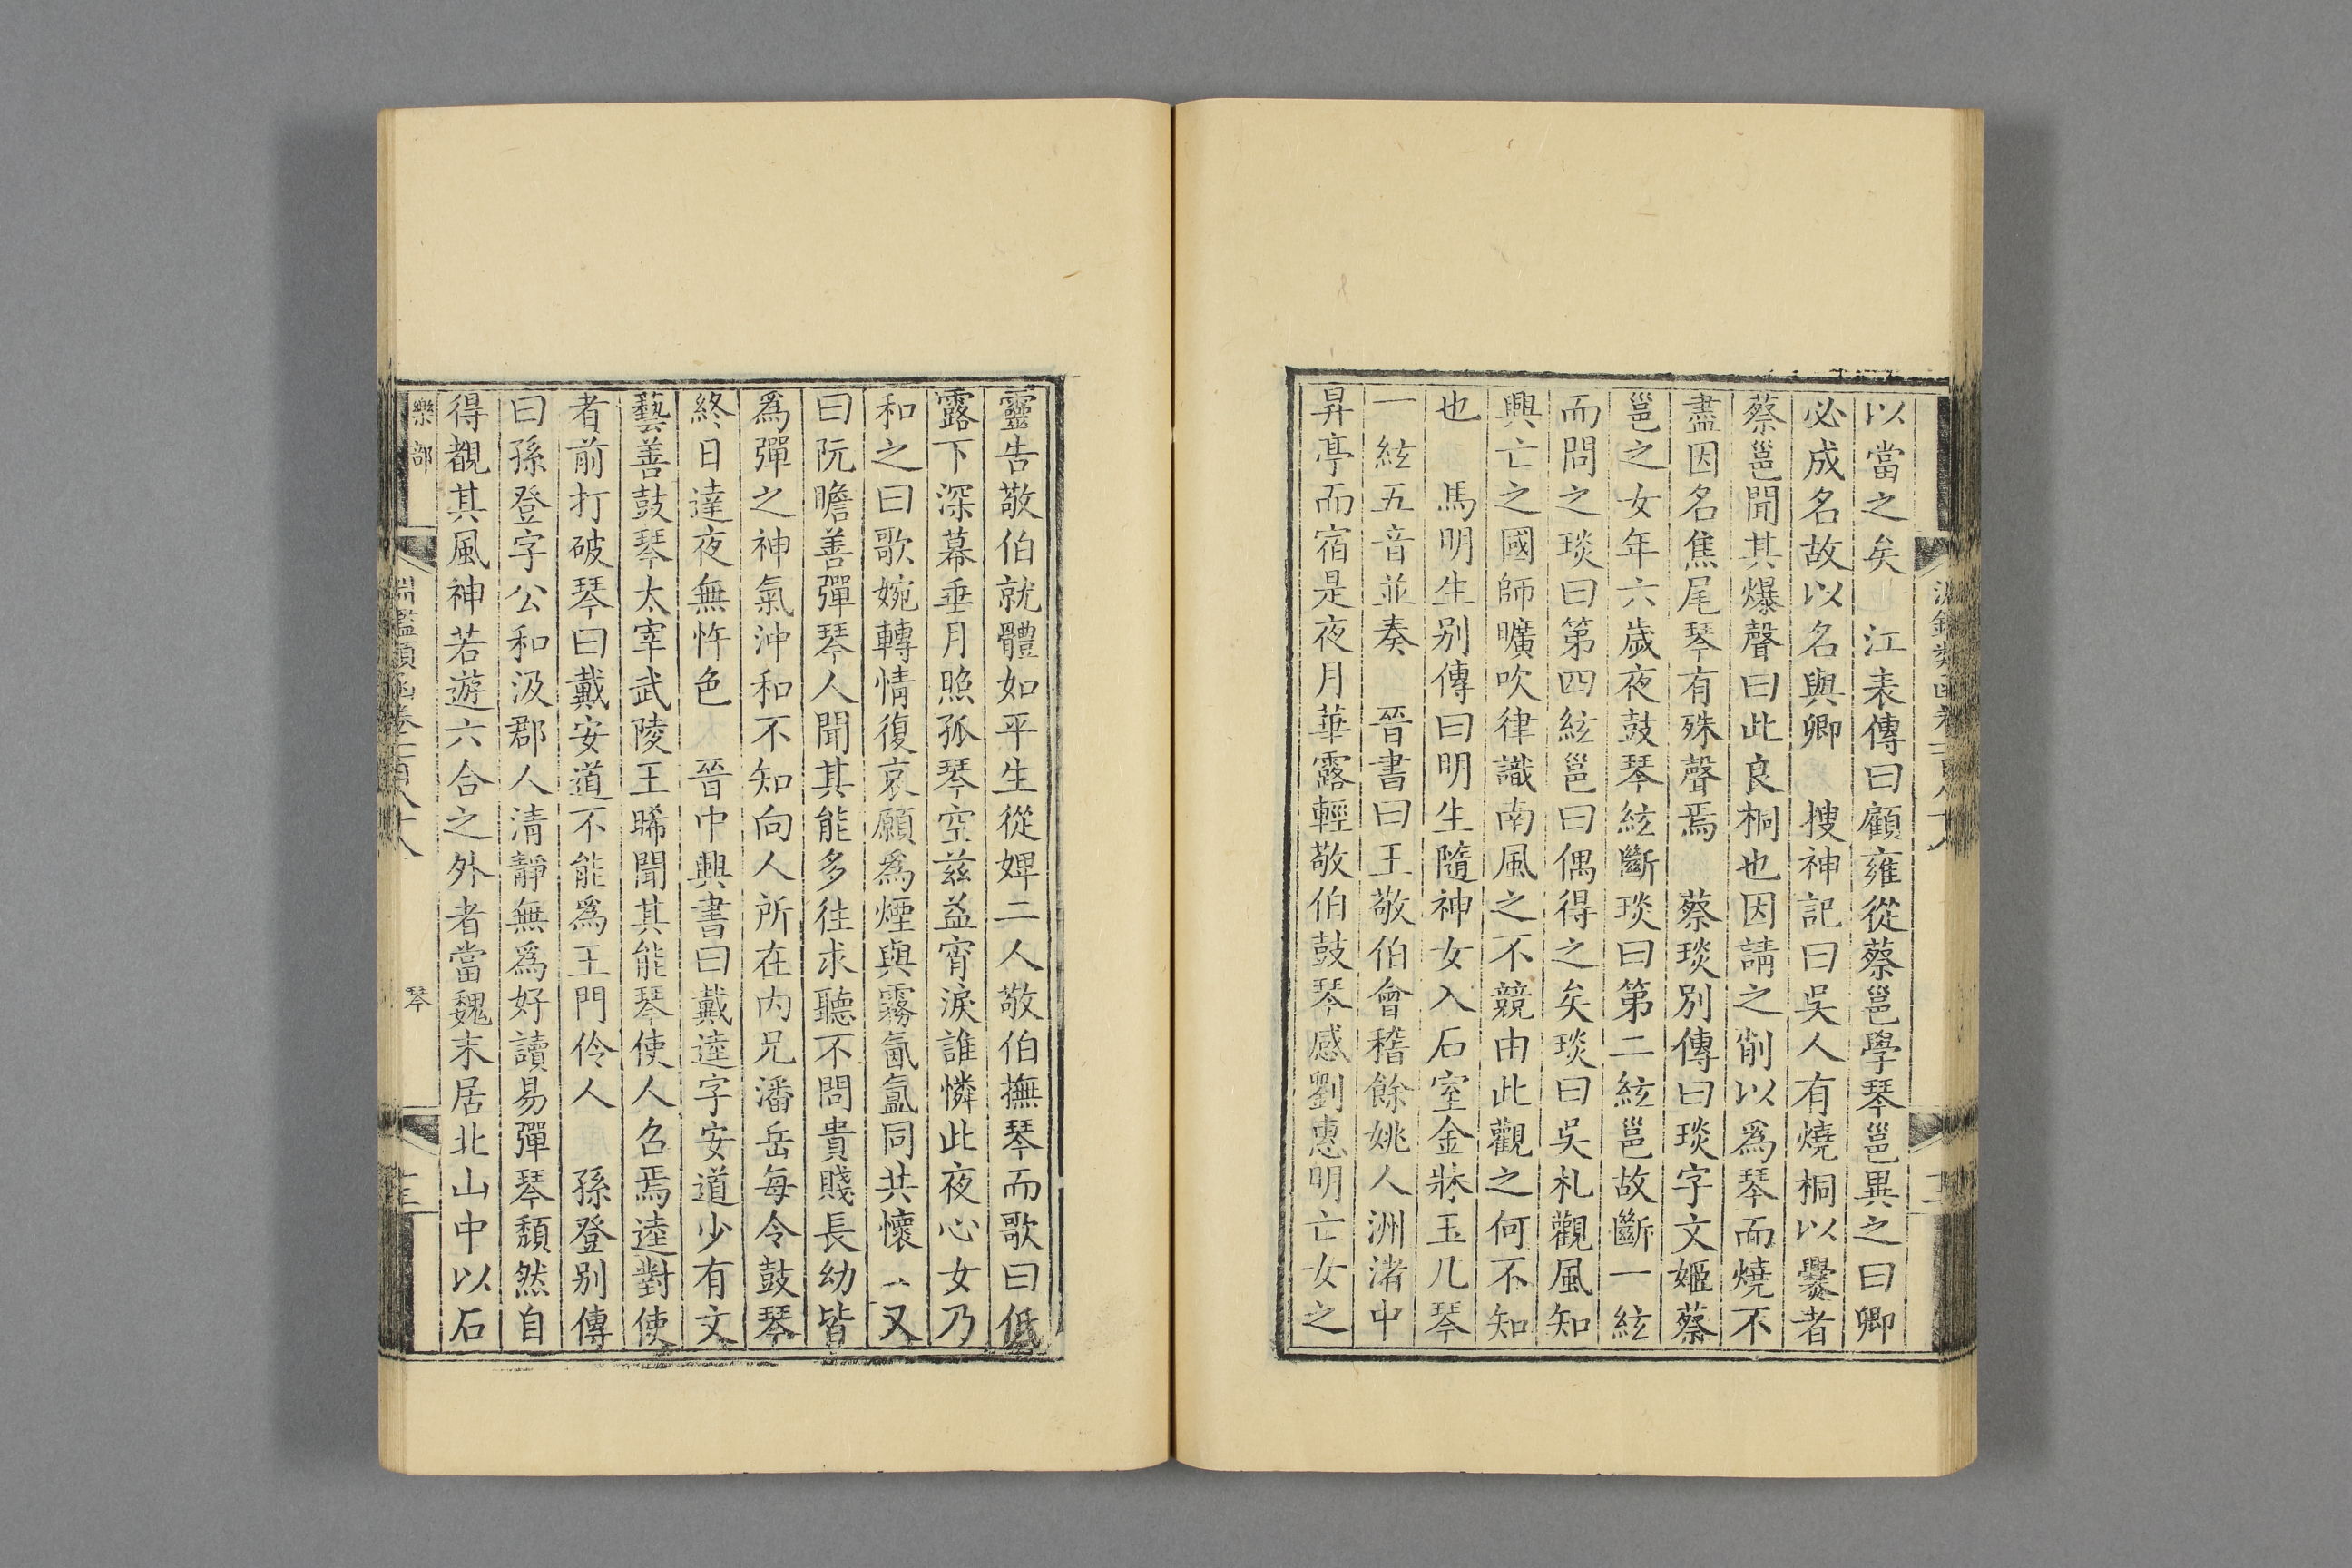 以當之矣　江表傳曰顧雍從蔡邕學琴邕異之曰卿
必成名故以名與卿　搜神記曰吳人有燒桐以爨者
蔡邕聞其爆聲曰此良桐也因請之削以爲琴而燒不
盡因名焦尾琴有殊聲焉　蔡琰別傳曰琰字文姬蔡
邕之女年六歲夜鼓琴絃斷琰曰第二絃邕故斷一絃
而問之琰曰第四絃邕曰偶得之矣琰曰吳札觀風知
興亡之國師曠吹律識南風之不競由此觀之何不知
也　馬明生别傳曰明生隨神女入石室金牀玉几琴
一絃五音並奏　晉書曰王敬伯會稽餘姚人洲渚中
昇亭而宿是夜月華露輕敬伯鼓琴感劉惠明亡女之
靈告敬伯就體如平生從婢二人敬伯撫琴而歌曰低
露下深幕垂月照孤琴空茲益宵淚誰憐此夜心女乃
和之曰歌婉轉情復哀願爲煙與霧氤氳同共懷　又
曰阮瞻善彈琴人聞其能多往求聽不問貴賤長幼皆
爲彈之神氣沖和不知向人所在内兄潘岳每令鼓琴
終日達夜無忤色　晉中興書曰戴逵字安道少有文
藝善鼓琴太宰武陵王晞聞其能琴使人召焉逵對使
者前打破琴曰戴安道不能爲王門伶人　孫登别傳
曰孫登字公和汲郡人清靜無爲好讀易彈琴頹然自
得觀其風神若遊六合之外者當魏末居北山中以石
樂部
淵鑑類函卷一百八十八
琴